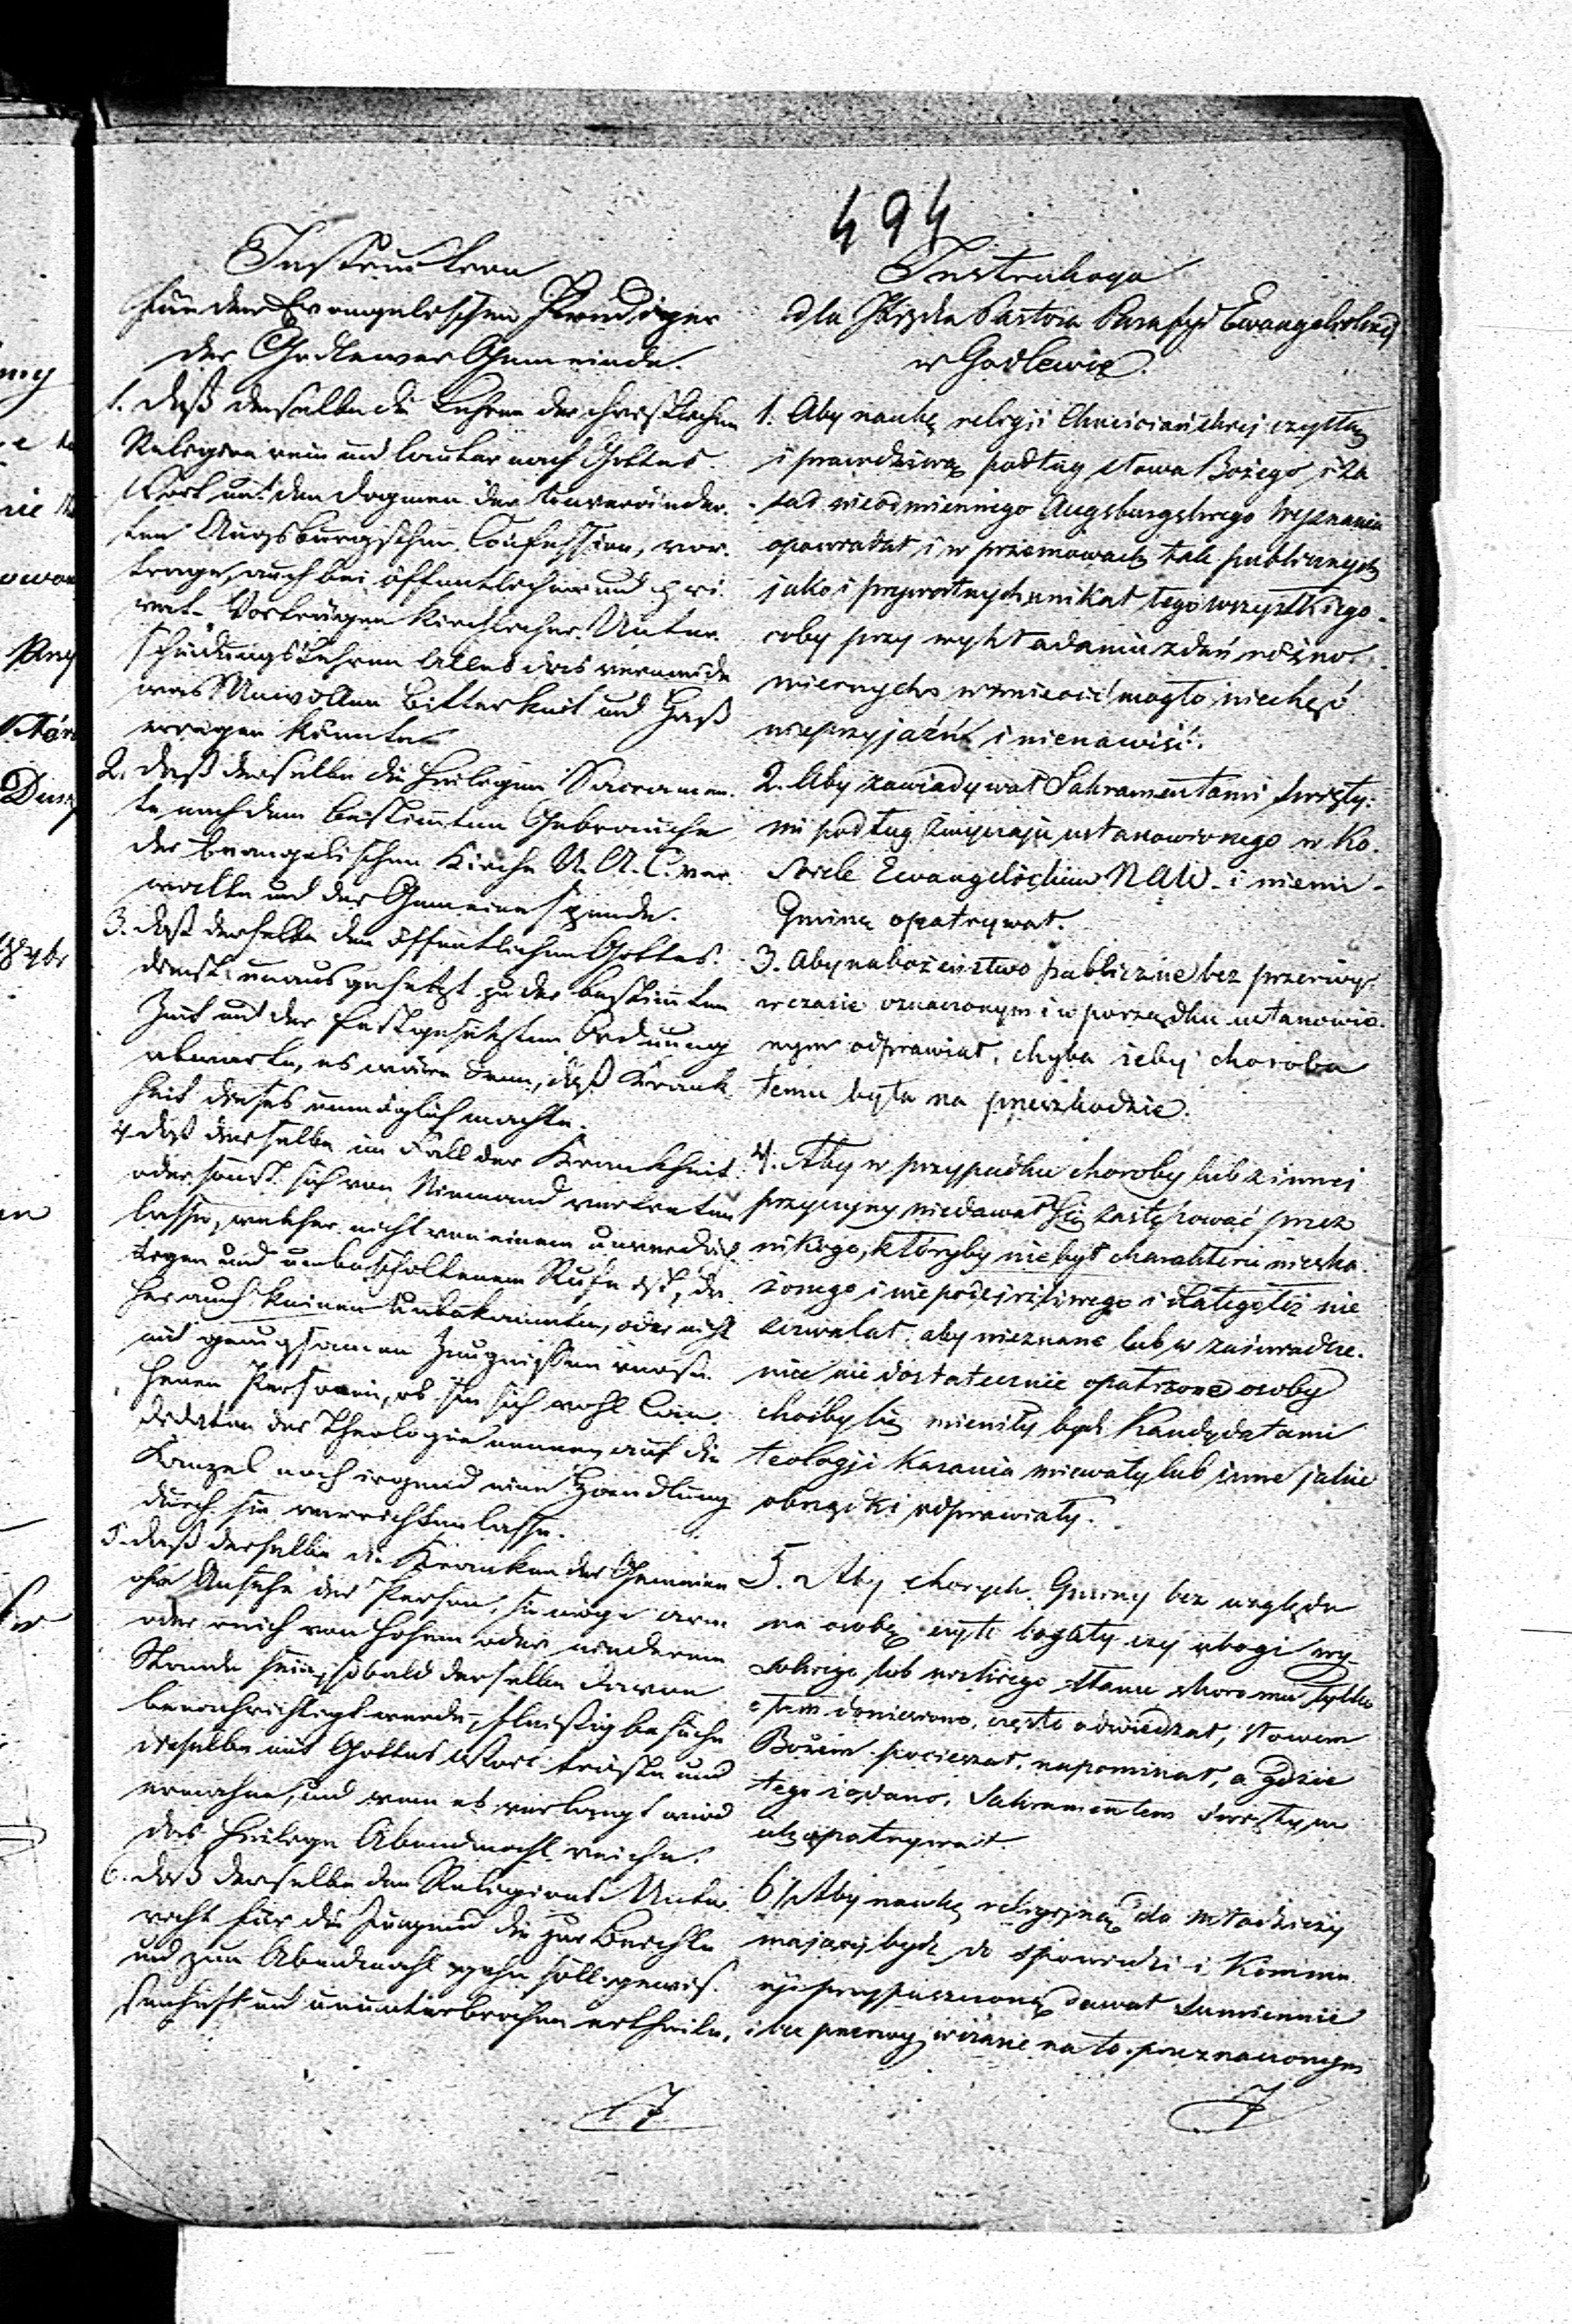 494
Instruktion
für den Evangelischen Prediger
der Godlewer Gemeinde.
1. daß derselbe die Lehren der christlichen
Religion rein und lauter nach Gottes
Wort und den Dogmen der unveränder-
ten Augsburgischen Confession, vor-
trage, auch bei öffentlichen und pri-
vat-Vorträgen kirchlicher Unter-
scheidungslehren alles das vermeide
was Unwillen Bitterkeit und Haß
erregen könnte.
2. daß derselbe die heiligen Sacramen-
te nach dem bestimmten Gebrauche
der evangelischen Kirche U. A. C. ver-
walte und der Gemeine spende.
3. daß derselbe den öffentlichen Gottes-
dienst unausgesetzt zu der bestimmten
Zeit und der festgesetzten Ordnung
abwarte, es wäre denn, daß Krank-
heit dieses unmöglich machte.
4. daß derselbe im Fall der Krankheit
oder sonst sich von Niemand vertreten
lasse, welcher nicht von einem unverdäch-
tigen und unbescholtenem Rufe ist, da-
her auch keinen Unbekannten, oder nicht
mit genugsamen Zeugnissen verse-
henen Personen, ob sie sich wohl Can-
didaten der Theologie nennen, auf die
Kanzel noch irgend eine Handlung
durch sie verrichten lasse.
5. daß derselbe die Kranken der Gemeine
ohne Ansehn der Person, sie möge arm
oder reich von hohem oder niederem
Stande sein, sobald derselbe davon
benachrichtigt werde, fleißig besuche
dieselbe mit Gottes Wort tröste und
ermahne, und wenn es verlangt wird
das heilige Abendmahl reiche.
6. daß derselbe den Religions-Unter-
richt für die Jugend die zur Beichte
und zum Abendmahl gehn soll gewis-
senhaft und ununterbrochen ertheile.
Instrukcya
dla Xiędza Pastora Parafji Ewangelickiej
w Godlewie.
1. Aby naukę religji Chrześciańskiej czystą
i prawdziwą podług słowa Bożego i za
sad nieodmiennego Augsburgskiego Wyznania
opowiadał i w przemowach tak publicznych
jako i prywatnych unikał tego wszystkiego
coby przy wykładaniu zdań różno-
wiernych wzniecić mogło niechęć
nieprzyjaźń i nienawiść.
2. Aby zawiadywał Sakramentami święty-
mi podług zwyczaju ustanowionego w Ko-
ściele Ewangelickim NAW. i niemi
Gminę opatrywał.
3. Aby nabożeństwo publiczne bez przerwy
w czasie oznaczonym i w porządku ustanowio-
nym odprawiał, chyba żeby choroba
temu była na przeszkodzie.
4. Aby w przypadku choroby lub z innej
przyczyny niedawał się zastępować przez
nikogo, któryby nie był charakteru nieska-
żonego i niepodejrzliwego i dlategoteż nie
zezwalał, aby nieznane lub w zaświadcze-
nia nie dostatecznie opatrzone osoby
choćby się mieniły być Kandydatami
teologji kazania miewały lub inne jakie
obrządki odprawiały.
5. Aby chorych Gminy bez względu
na osobę czyli bogaty czy ubogi wy-
sokiego lub niskiego stanu skoro mu tylko
o tem doniesiono, często odwiedzał, słowem
Bożem pocieszał, napominał, a gdzie
tego żądano, Sakramentem świętym
ich opatrywał.
6. Aby naukę religijną dla młodzieży
mającej być do spowiedzi i Kommu-
nji przypuszczoną dawał sumiennie
i bez przerwy w czasie na to przeznaczonym